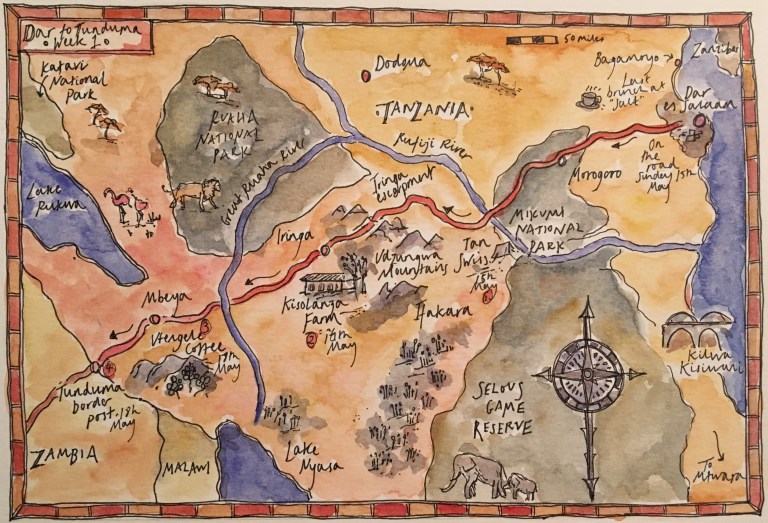 Dar to Tunduma
Week 1
Katavi
National
Park
Lake
Rukwa
RUAHA
NATIONAL
PARK
Great Ruaha River
Dodoma
TANZANIA
Rufiji River
50 miles
Bagamoyo
Zanzibar
Last
brunch at
"Salt"
Dar
es Salaam
On
the
road
Sunday 15th
May
Morogoro
MIKUMI
NATIONAL
PARK
Iringa
escarpment
Iringa
Udzungwa
Mountains
Tan
Swiss
15th
May
1
Kisolanza
Farm
16th
May
2
Ifakara
Mbeya
3
Utengele
Coffee
17th
May
4
Tunduma
border
post. 18th
May
ZAMBIA
MALAWI
Lake
Nyasa
SELOUS
GAME
RESERVE
Kilwa
Kisiwani
To
Mtwara